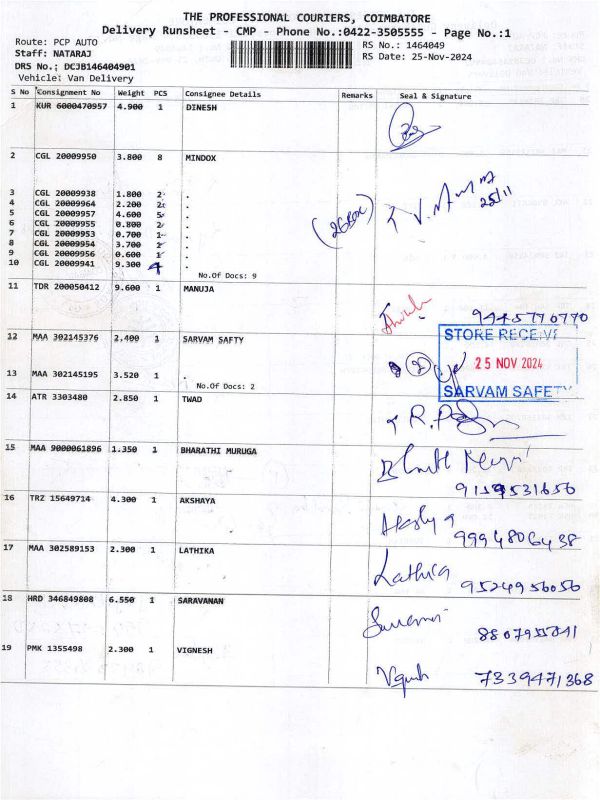 THE PROFESSIONAL COURIERS, COIMBATORE
Delivery Runsheet - CMP - Phone No.:0422-3505555 - Page No.:1
Route: PCP AUTO RS No.: 1464049
Staff: NATARAJ RS Date: 25-Nov-2024
DRS No.; DCJB146404901
Vehicle: Van Delivery
S No Consignment No Weight PCS Consignee Details Remarks Seal & Signature
1 KUR 6000470957 4.900 1 DINESH
2 CGL 20009950 3.800 8 MINDOX
3 CGL 20009938 1.800 2 .
4 CGL 20009964 2.200 2 .
5 CGL 20009957 4.600 5 .
6 CGL 20009955 0.800 2 .
7 CGL 20009953 0.700 1 .
8 CGL 20009954 3.700 1 .
9 CGL 20009956 0.600 1 .
10 CGL 20009941 9.300 4 .
(26Box) 25/11
No.Of Docs: 9
11 TDR 200050412 9.600 1 MANUJA
9445770770
12 MAA 302145376 2.400 1 SARVAM SAFTY
STORE RECEIV
25 NOV 2024
SARVAM SAFETY
13 MAA 302145195 3.520 1 .
No.Of Docs: 2
14 ATR 3303480 2.850 1 TWAD
15 MAA 9000061896 1.350 1 BHARATHI MURUGA
9159531656
16 TRZ 15649714 4.300 1 AKSHAYA
9994806438
17 MAA 302589153 2.300 1 LATHIKA Lathica
9524956056
18 HRD 346849808 6.550 1 SARAVANAN
19 PMK 1355498 2.300 1 VIGNESH
7339471368